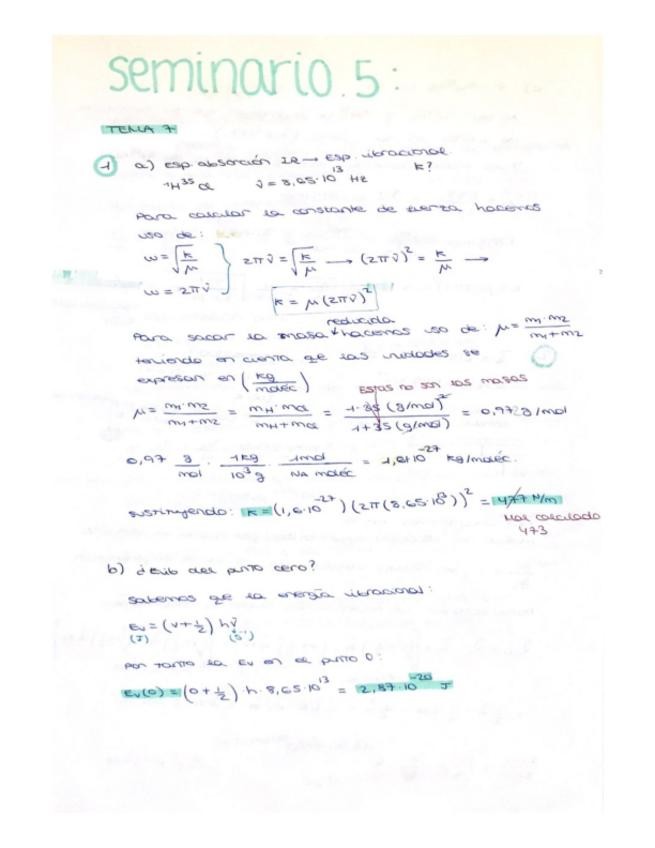 seminario 5:
TEMA 7
1 a) esp. absorción IR → esp. vibracional
¹H³⁵Cl ν̄ = 8,65·10¹³ Hz k?
Para calcular la constante de fuerza hacemos
uso de:
ω = √(k/μ) } 2πν̄ = √(k/μ) → (2πν̄)² = k/μ →
ω = 2πν̄ k = μ(2πν̄)²
Para sacar la masa reducida hacemos uso de: μ = m₁·m₂/m₁+m₂
teniendo en cuenta que las unidades se
expresan en (kg/moléc)
Estas no son las masas
μ = m₁·m₂/m₁+m₂ = mH·mCl/mH+mCl = 1·35 (g/mol)²/1+35 (g/mol) = 0,972 g/mol
0,97 g/mol · 1kg/10³ g · 1mol/NA moléc = 1,6·10⁻²⁷ kg/moléc.
sustituyendo: k = (1,6·10⁻²⁷)(2π(8,65·10¹³))² = 477 N/m
Mal calculado
473
b) ¿Evib del punto cero?
Sabemos que la energía vibracional:
Ev = (v + ½) hν̄
(J) (s⁻¹)
Por tanto la Ev en el punto 0:
Ev(0) = (0 + ½)·h·8,65·10¹³ = 2,87·10⁻²⁰ J